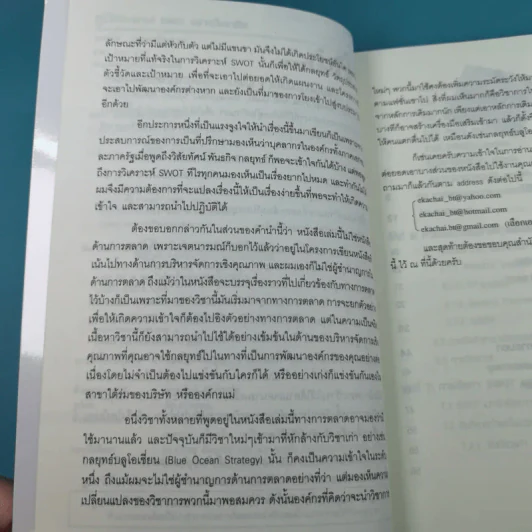 ลักษณะที่ว่ามีแต่หัวกับตัว แต่ไม่มีแขนขา มันจึงไม่ได้เกิดประโยชน์อันใด
เป้าหมายที่แท้จริงในการวิเคราะห์ SWOT นั้นก็เพื่อให้ได้กลยุทธ์ วัตถุประสงค์
ตัวชี้วัดและเป้าหมาย เพื่อที่จะเอาไปต่อยอดให้เกิดแผนงาน และโครงการ
จะเอาไปพัฒนาองค์กรต่างหาก และยังเป็นที่มาของการโยงเข้าไปสู่งบประมาณ
อีกด้วย
อีกประการหนึ่งที่เป็นแรงจูงใจให้นำเรื่องนี้ขึ้นมาเขียนก็เป็นเพราะ
ประสบการณ์ของการเป็นที่ปรึกษามองเห็นว่าบุคลากรในองค์กรทั้งภาคเอกชน
และภาครัฐเมื่อพูดถึงวิสัยทัศน์ พันธกิจ กลยุทธ์ ก็พอจะเข้าใจกันได้บ้าง แต่พอพูด
ถึงการวิเคราะห์ SWOT ทีไรทุกคนมองเห็นเป็นเรื่องยากไปหมด และทำกันไม่
ผมจึงมีความต้องการที่จะแปลงเรื่องนี้ให้เป็นเรื่องง่ายขึ้นที่พอจะทำให้เกิดความ
เข้าใจ และสามารถนำไปปฏิบัติได้
ต้องขอบอกกล่าวกันในส่วนของคำนำนี้ว่า หนังสือเล่มนี้ไม่ใช่หนังสือ
ด้านการตลาด เพราะเจตนารมณ์ก็บอกไว้แล้วว่าอยู่ในโครงการเขียนหนังสือ
เน้นไปทางด้านการบริหารจัดการเชิงคุณภาพ และผมเองก็ไม่ใช่ผู้ชำนาญการ
ด้านการตลาด ถึงแม้ว่าในหนังสือจะบรรจุเรื่องราวที่ไปเกี่ยวข้องกับทางการตลาด
ไว้บ้างก็เป็นเพราะที่มาของวิชานี้มันเริ่มมาจากทางการตลาด การจะยกตัวอย่าง
เพื่อให้เกิดความเข้าใจก็ต้องไปอิงตัวอย่างทางการตลาด แต่ในความเป็นจริง
เนื้อหาวิชานี้ก็ยังสามารถนำไปใช้ได้อย่างเข้มข้นในด้านของบริหารจัดการเชิง
คุณภาพที่คุณอาจใช้กลยุทธ์ไปในทางที่เป็นการพัฒนาองค์กรของคุณอย่างต่อ
เนื่องโดยไม่จำเป็นต้องไปแข่งขันกับใครก็ได้ หรืออย่างเก่งก็แข่งขันกันเองใน
สาขาใต้ร่มของบริษัท หรือองค์กรแม่
อนึ่งวิชาทั้งหลายที่พูดอยู่ในหนังสือเล่มนี้ทางการตลาดอาจมองว่า
ใช้มานานแล้ว และปัจจุบันก็มีวิชาใหม่ๆเข้ามาที่หักล้างกับวิชาเก่า อย่างเช่น
กลยุทธ์บลูโอเชี่ยน (Blue Ocean Strategy) นั้น ก็คงเป็นความเข้าใจในระดับ
หนึ่ง ถึงแม้ผมจะไม่ใช่ผู้ชำนาญการด้านการตลาดอย่างที่ว่า แต่มองเห็นความ
เปลี่ยนแปลงของวิชาการพวกนี้มาพอสมควร ดังนั้นองค์กรที่คิดว่าจะนำวิชาการ
ใหม่ๆ พวกนี้มาใช้คงต้องเพิ่มความระมัดระวังให้มาก
ตามแห่ชั่นเขาไป สิ่งที่ผมเห็นมากก็คือวิชาการใหม่
จากหลักการเดิมมากนัก เพียงแต่เอาหลักการเดิม
บางทีก็อาจสร้างเครื่องมือเสริมเข้ามา แล้วก็ตั้งชื่อ
ให้คนแตกตื่นไปได้ เหมือนดังเช่นกลยุทธ์บลูโอ
ก็เช่นเคยครับความเข้าใจในการอ่าน
ต่อยอดเอาบางส่วนของหนังสือไปใช้งานคุณ
ถามมาก็แล้วกันตาม address ดังต่อไปนี้
ekachai_bt@yahoo.com
ekachai_bt@hotmail.com
ekachai_bt@gmail.com (เลือกเอา
และสุดท้ายต้องขอขอบคุณสำนัก
นี้ ไว้ ณ ที่นี้ด้วยครับ